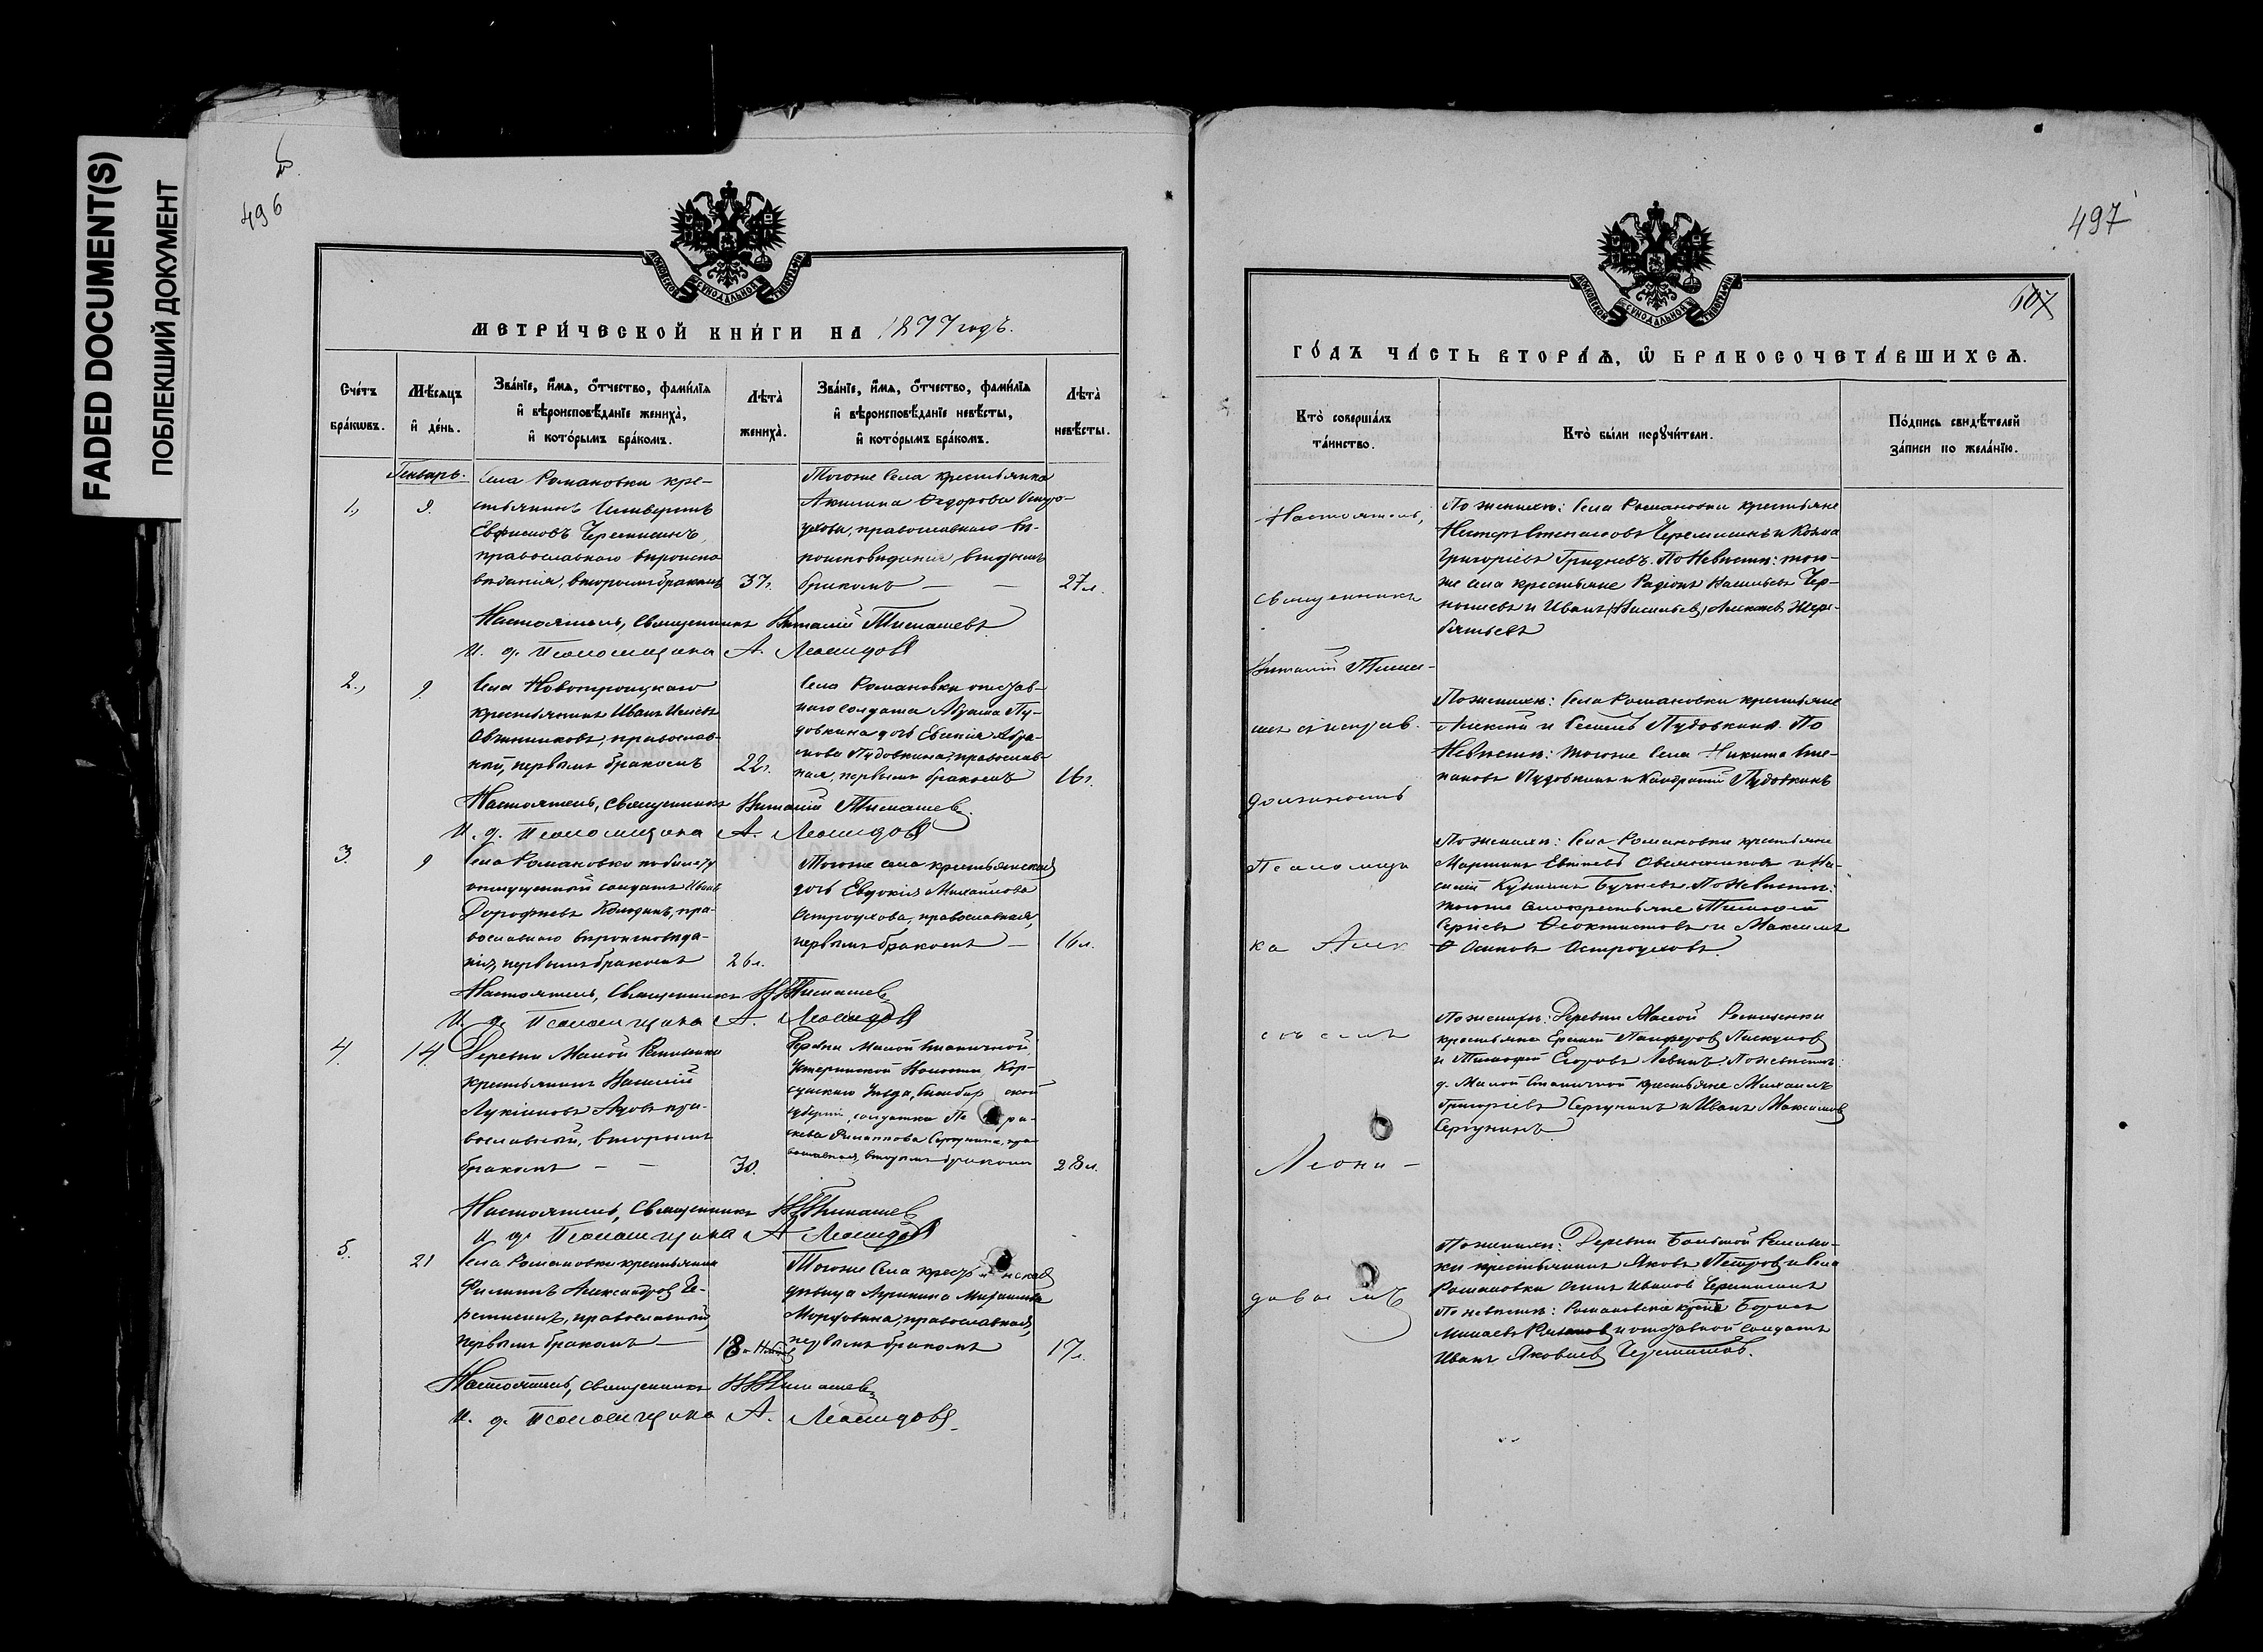 FADED DOCUMENT(S)
ПОБЛЕКШИЙ ДОКУМЕНТ
496
МОСКОВСКОЙ СУНОДАЛЬНОЙ ТИПОГРАФІИ
МЕТРИ́ЧЕСКОЙ КНИ́ГИ НА 1877 годъ.
Сче́тъ бра́кѡвъ.
Мѣ́сѧцъ и҆ де́нь.
Зва́нїе, и҆́мѧ, ѻ҆́тчество, фами́лїѧ и҆ вѣроисповѣ́данїе женихà, и҆ кото́рымъ бра́комъ.
Лѣ́та женихà.
Зва́нїе, и҆́мѧ, ѻ҆́тчество, фами́лїѧ и҆ вѣроисповѣ́данїе невѣ́сты, и҆ кото́рымъ бра́комъ.
Лѣ́та невѣ́сты.
Генварь.
1., 9.
Села Романовки кре-
стьянинъ
Евфимовъ Черемисинъ,
православнаго вѣроиспо
вѣданія, вторымъ бракомъ
37 г.
Тогоже Села крестьянка
Акилина Ѳедорова
православнаго вѣ-
роисповѣданія, вторымъ
бракомъ —
27 л.
Настоятель, Священникъ Виталій Тимашевъ
И. д. Псаломщика А. Леонидовъ
2., 9
Села Новотроицкаго
крестьянинъ Иванъ
Овчинниковъ, православ-
ный, первымъ бракомъ
22 г.
Села Романовки отстав-
наго солдата Абрама Пу-
довкина дочь Евгенія Абра-
мова Пудовкина, православ-
ная, первымъ бракомъ
16 г.
Настоятель, Священникъ Виталій Тимашевъ
И. д. Псаломщика А. Леонидовъ
3. 9
Села Романовки по билету
отпущенный солдатъ Иванъ
Дорофеевъ Колодинъ, пра-
вославнаго вѣроисповѣда-
нія, первымъ бракомъ
26 л.
Тогоже села крестьянская
дочь Евдокія Михайлова
Остроухова, православная,
первымъ бракомъ —
16 л.
Настоятель, Священникъ В Тимашевъ
И. д. Псаломщика А. Леонидовъ
4. 14.
Деревни Малой
крестьянинъ Василій
Лукіановъ пра-
вославный, вторымъ
бракомъ — —
30.
Деревни Малой Станичной,
Корсунскаго Уѣзда, Симбирской
губерніи, солдатка Параскева
Филиппова Сергунина, пра-
вославная, вторымъ бракомъ
28 л.
Настоятель, Священникъ В Тимашевъ
И. д. Псаломщика А. Леонидовъ
5. 21
Села Романовки крестьянинъ
Филиппъ Александровъ Че-
ремисинъ, православный,
первымъ бракомъ —
18
Тогоже Села крестьянская
дѣвица
Мордовина, православная,
первымъ бракомъ
17 л.
Настоятель, Священникъ В Тимашевъ
И. д. Псаломщика А. Леонидовъ.
497
507
МОСКОВСКОЙ СУНОДАЛЬНОЙ ТИПОГРАФІИ
ГО́ДЪ ЧА́СТЬ ВТОРА́Ѧ, Ѽ БРАКОСОЧЕТА́ВШИХСѦ.
Кто̀ соверша́лъ та́инство.
Кто̀ бы́ли порꙋчи́тели.
По́дпись свидѣ́телей за́писи по жела́нїю.
Настоятель,
священникъ
Виталій Тима-
шевъ съ исправ.
должность
Псаломщи
ка Алек
сѣемъ
Леони-
довымъ
По женихѣ: Села Романовки крестьяне
Нестеръ Степановъ Черемисинъ и Козма
Григорьевъ Гридневъ. По Невѣстѣ: того-
же села крестьяне Радіонъ Васильевъ Чер-
нышевъ и Иванъ Алексѣевъ Жере-
бятьевъ
По женихѣ: Села Романовки крестьяне
Алексѣй и Семенъ Пудовкины. По
Невѣстѣ: тогоже Села Никита Сте-
пановъ Пудовкинъ и Кондратій Пудовкинъ
По женихѣ: Села Романовки крестьяне
Мартинъ Овсянниковъ и Ва-
силій По Невѣстѣ:
тогоже села крестьяне Тимофей
Сергѣевъ Ѳеоктистовъ и Максимъ
Осиповъ Остроуховъ.
По женихѣ: Деревни Малой
крестьяне Еремей Панферовъ Пискуновъ
и Тимофей Егоровъ Левинъ. По невѣстѣ:
д. Малой Станичной крестьяне Михаилъ
Григорьевъ Сергунинъ и Иванъ Максимовъ
Сергунинъ
По женихѣ: Деревни Большой
крестьянинъ Яковъ Петровъ и Села
Романовки Иванов Черемисинъ
По невѣстѣ: Романовскіе Борисъ
Минаевъ и отставной солдатъ
Иванъ Яковлевъ Черемисовъ.